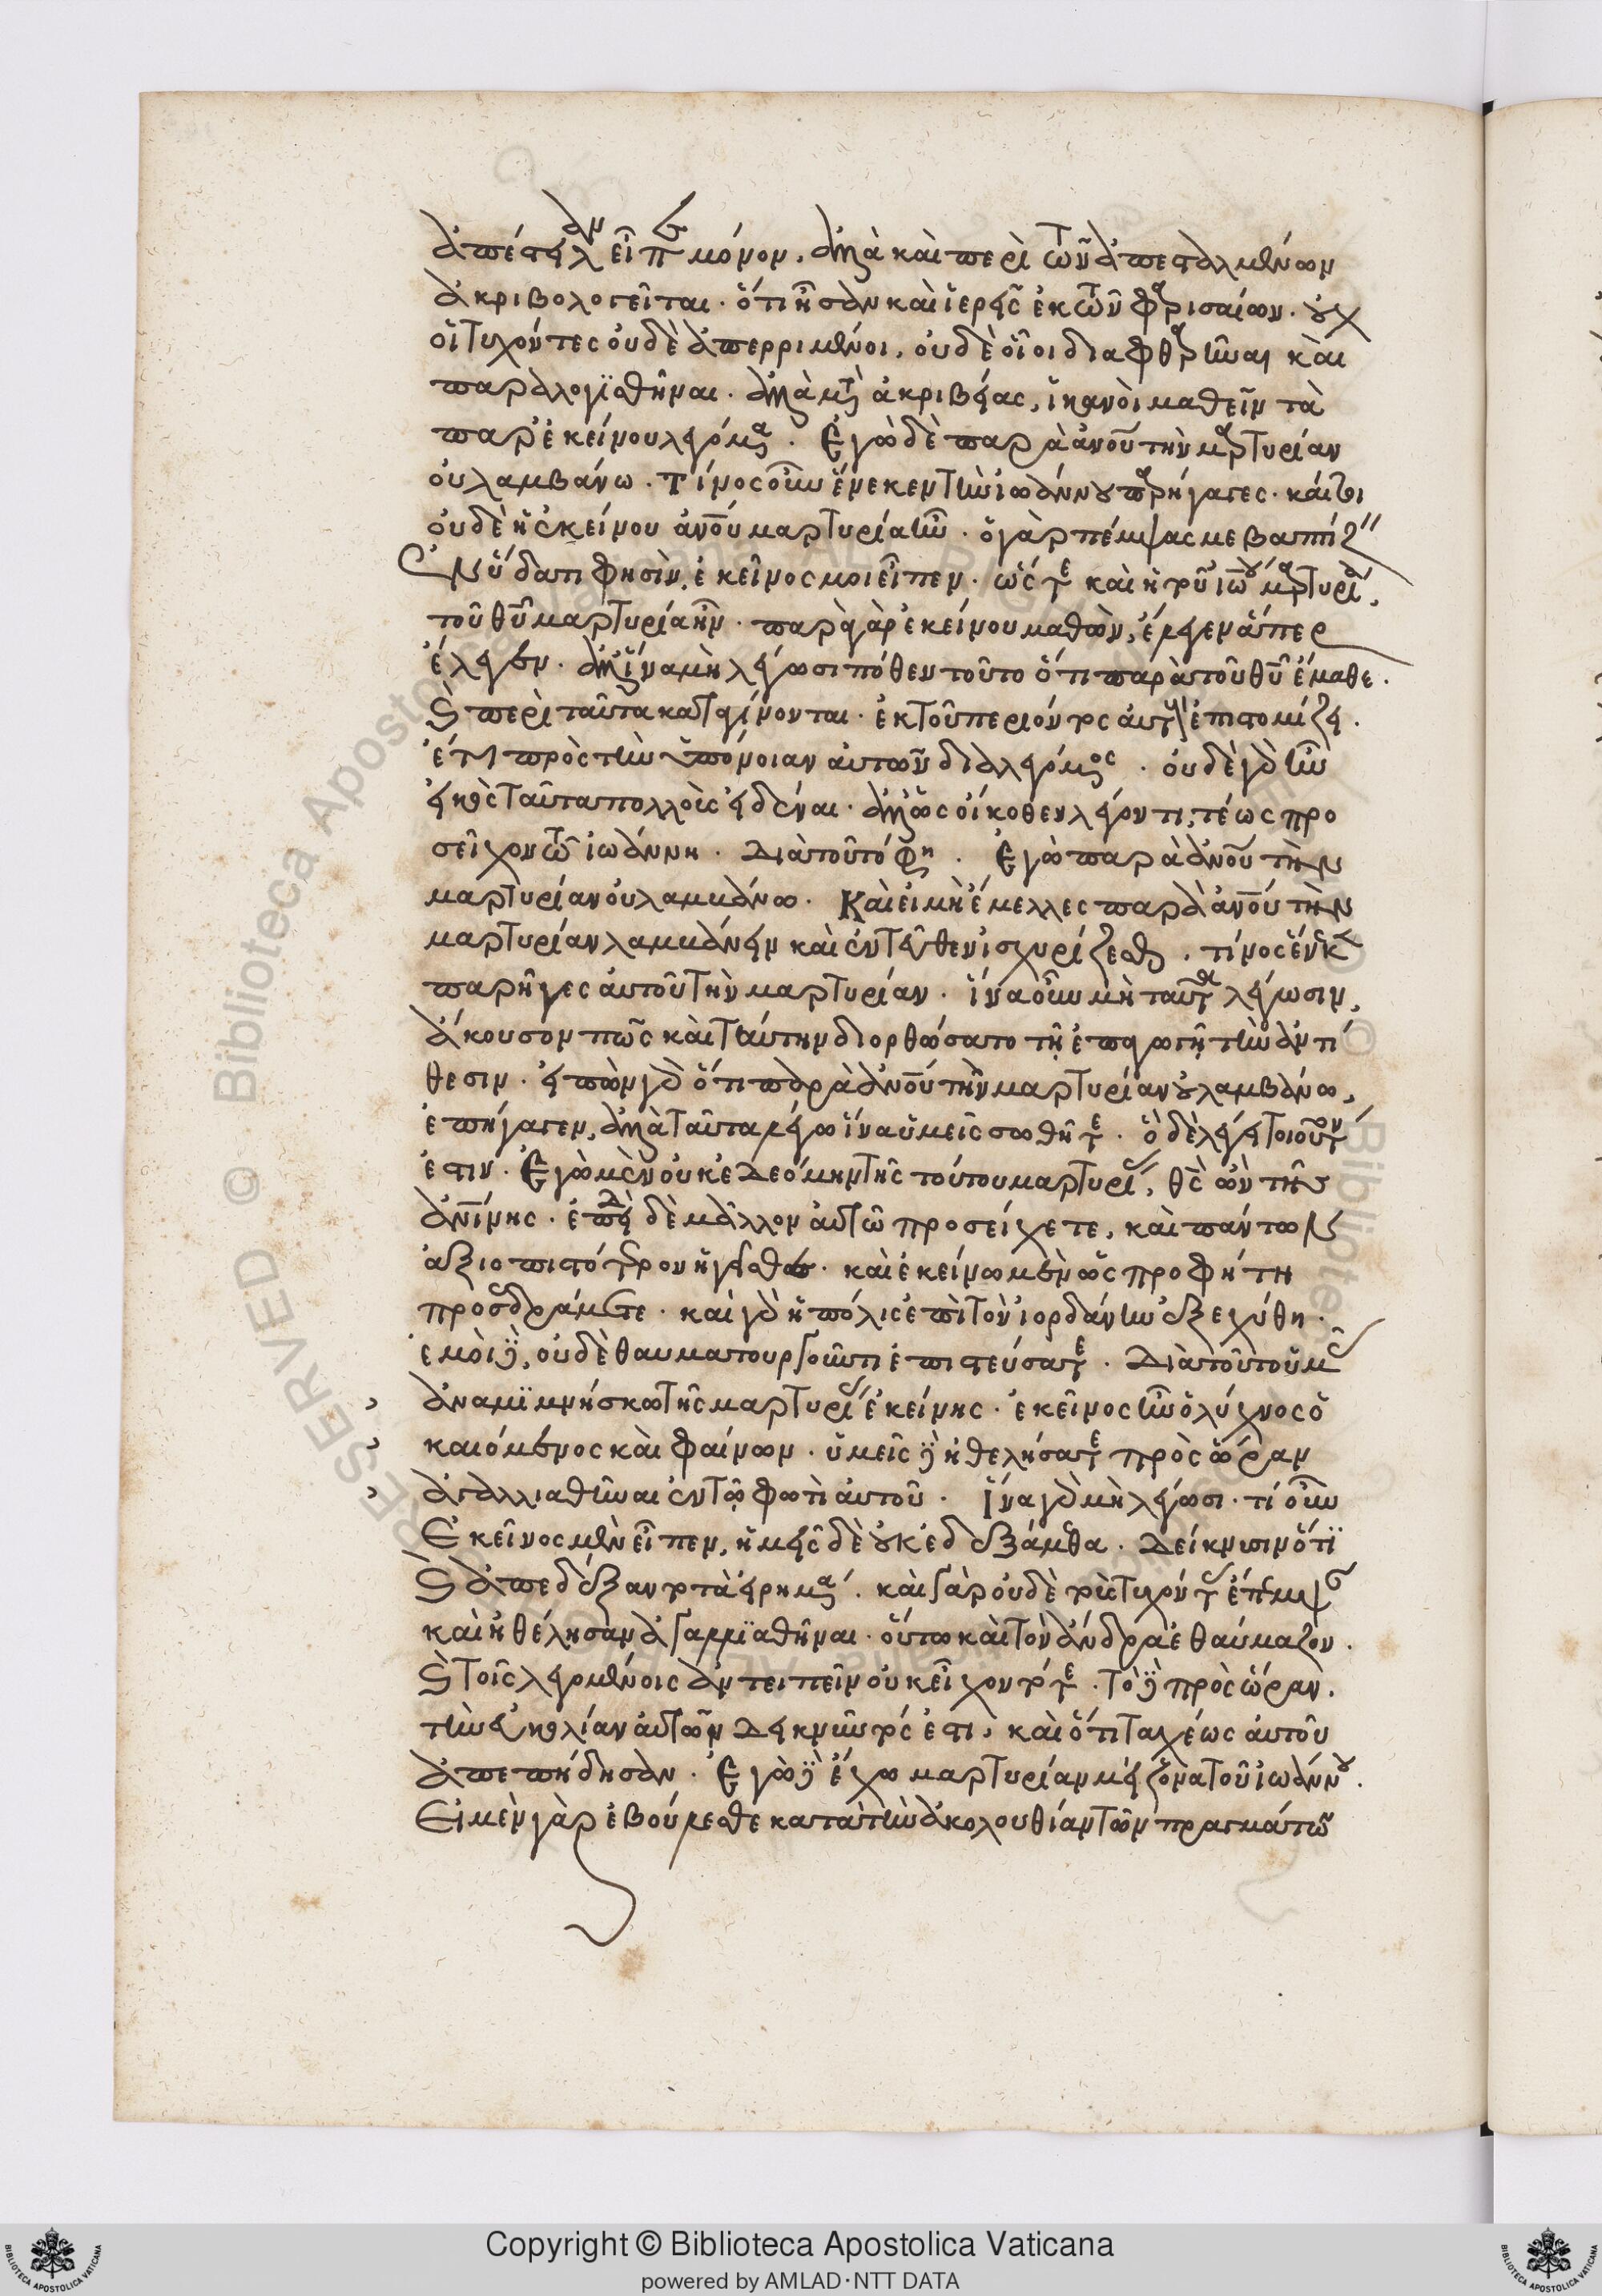 ἀπέστειλαν εἶπε μόνον. ἀλλὰ καὶ περὶ τῶν ἀπεσταλμένων
ἀκριβολογεῖται. ὅτι ἦσαν καὶ ἱερεῖς ἐκ τῶν φαρισαίων. οὐχ
οἱ τυχόντες οὐδὲ ἀπερριμμένοι. οὐδὲ οἷοι διαφθαρῆναι καὶ
παραλογισθῆναι. ἀλλὰ μετὰ ἀκριβείας, ἱκανοὶ μαθεῖν τὰ
παρ' ἐκείνου λεγόμενα. Ἐγὼ δὲ παρὰ ἀνου τὴν μαρτυρίαν
οὐ λαμβάνω. Τίνος οὖν ἕνεκεν τὴν ἰωάννου παρήγαγες. καίτοι
οὐδὲ ἡ ἐκείνου ἀνου μαρτυρία ἦν. ὁ γὰρ πέμψας με βαπτίζειν
ἐν ὕδατι φησὶν, ἐκεῖνος μοι εἶπεν. ὥστε καὶ ἡ τοῦ ἰω μαρτυρία,
τοῦ θυ μαρτυρία ἦν. παρ γὰρ ἐκείνου μαθὼν, ἔλεγεν ἅπερ
ἔλεγεν. ἀλλ' ἵνα μὴ λέγωσι πόθεν τοῦτο ὅτι παρὰ τοῦ θυ ἔμαθε.
καὶ περὶ ταῦτα καταγίνονται. ἐκ τοῦ περιόντος αὐτοὺς ἐπιστομίζει.
ἔτι πρὸς τὴν ὑπόνοιαν αὐτῶν διαλεγόμενος. οὐδὲ γὰρ ἦν
εἰκὸς ταῦτα πολλοῖς εἰδέναι. ἀλλ' ὡς οἴκοθεν λέγοντι, τέως προ
σεῖχον τῶ ἰωάννη. Διὰ τοῦτό φη. Ἐγὼ παρὰ ἀνου τὴν
μαρτυρίαν οὐ λαμβάνω. Καὶ εἰ μὴ ἔμελλες παρὰ ἀνου τὴν
μαρτυρίαν λαμβάνειν καὶ ἐντεῦθεν ἰσχυρίζεσθαι, τίνος ἕνεκεν
παρῆγες αὐτοῦ τὴν μαρτυρίαν. ἵνα οὖν μὴ ταῦτα λέγωσιν,
ἄκουσον πῶς καὶ ταύτην διορθώσατο τῇ ἐπαγωγῇ τὴν ἀντί
θεσιν. εἰπὼν γὰρ ὅτι παρὰ ἀνου τὴν μαρτυρίαν οὐ λαμβάνω,
ἐπήγαγεν, ἀλλὰ ταῦτα λέγω ἵνα ὑμεῖς σωθῆτε. ὃ δὲ λέγει τοιοῦτον
ἐστιν. Ἐγὼ μὲν οὐκ ἐδεόμην τῆς τούτου μαρτυρίας, θς ὢν τῆς
ἀνίνης. ἐπειδὴ δὲ μᾶλλον αὐτῶ προσείχετε, καὶ πάντων
ἀξιοπιστότερον ἡγεῖσθαι. καὶ ἐκείνω μὲν ὡς προφήτη
προσεδράμετε. καὶ γὰρ ἡ πόλις ἐπὶ τὸν ἰορδάνην ἐξεχύθη.
ἐμοὶ δὲ, οὐδὲ θαυματουργοῦντι ἐπιστεύσατε. Διὰ τοῦτο ὑμᾶς
ἀναμιμνήσκω τῆς μαρτυρίας ἐκείνης. ἐκεῖνος ἦν ὁ λύχνος ὁ
καιόμενος καὶ φαίνων. ὑμεῖς δὲ ἠθελήσατε πρὸς ὥραν
ἀγαλλιαθῆναι ἐν τῷ φωτὶ αὐτοῦ. Ἵνα γὰρ μὴ λέγωσι. τί οὖν
Ἐκεῖνος μὲν εἶπεν, ἡμεῖς δὲ οὐκ ἐδεξάμεθα. Δείκνυσιν ὅτι
καὶ ἀπεδέξαντο τὰ εἰρημένα. καὶ γὰρ οὐδὲ τοὺς τυχόντας ἔπεμψαν
καὶ ἠθέλησαν ἀγαλλιαθῆναι. οὕτω καὶ τὸν ἄνδρα ἐθαύμαζον.
καὶ τοῖς λεγομένοις ἀντειπεῖν οὐκ εἶχον τότε. Τὸ δὲ πρὸς ὥραν,
τὴν εὐκολίαν αὐτῶν δεικνῦντός ἐστι, καὶ ὅτι ταχέως αὐτοῦ
ἀπεπήδησαν. Ἐγὼ δὲ ἔχω μαρτυρίαν μείζονα τοῦ ἰωάννου.
Εἰ μὲν γὰρ ἐβούλεσθε κατὰ τὴν ἀκολουθίαν τῶν πραγμάτων
Copyright © Biblioteca Apostolica Vaticana
powered by AMLAD·NTT DATA